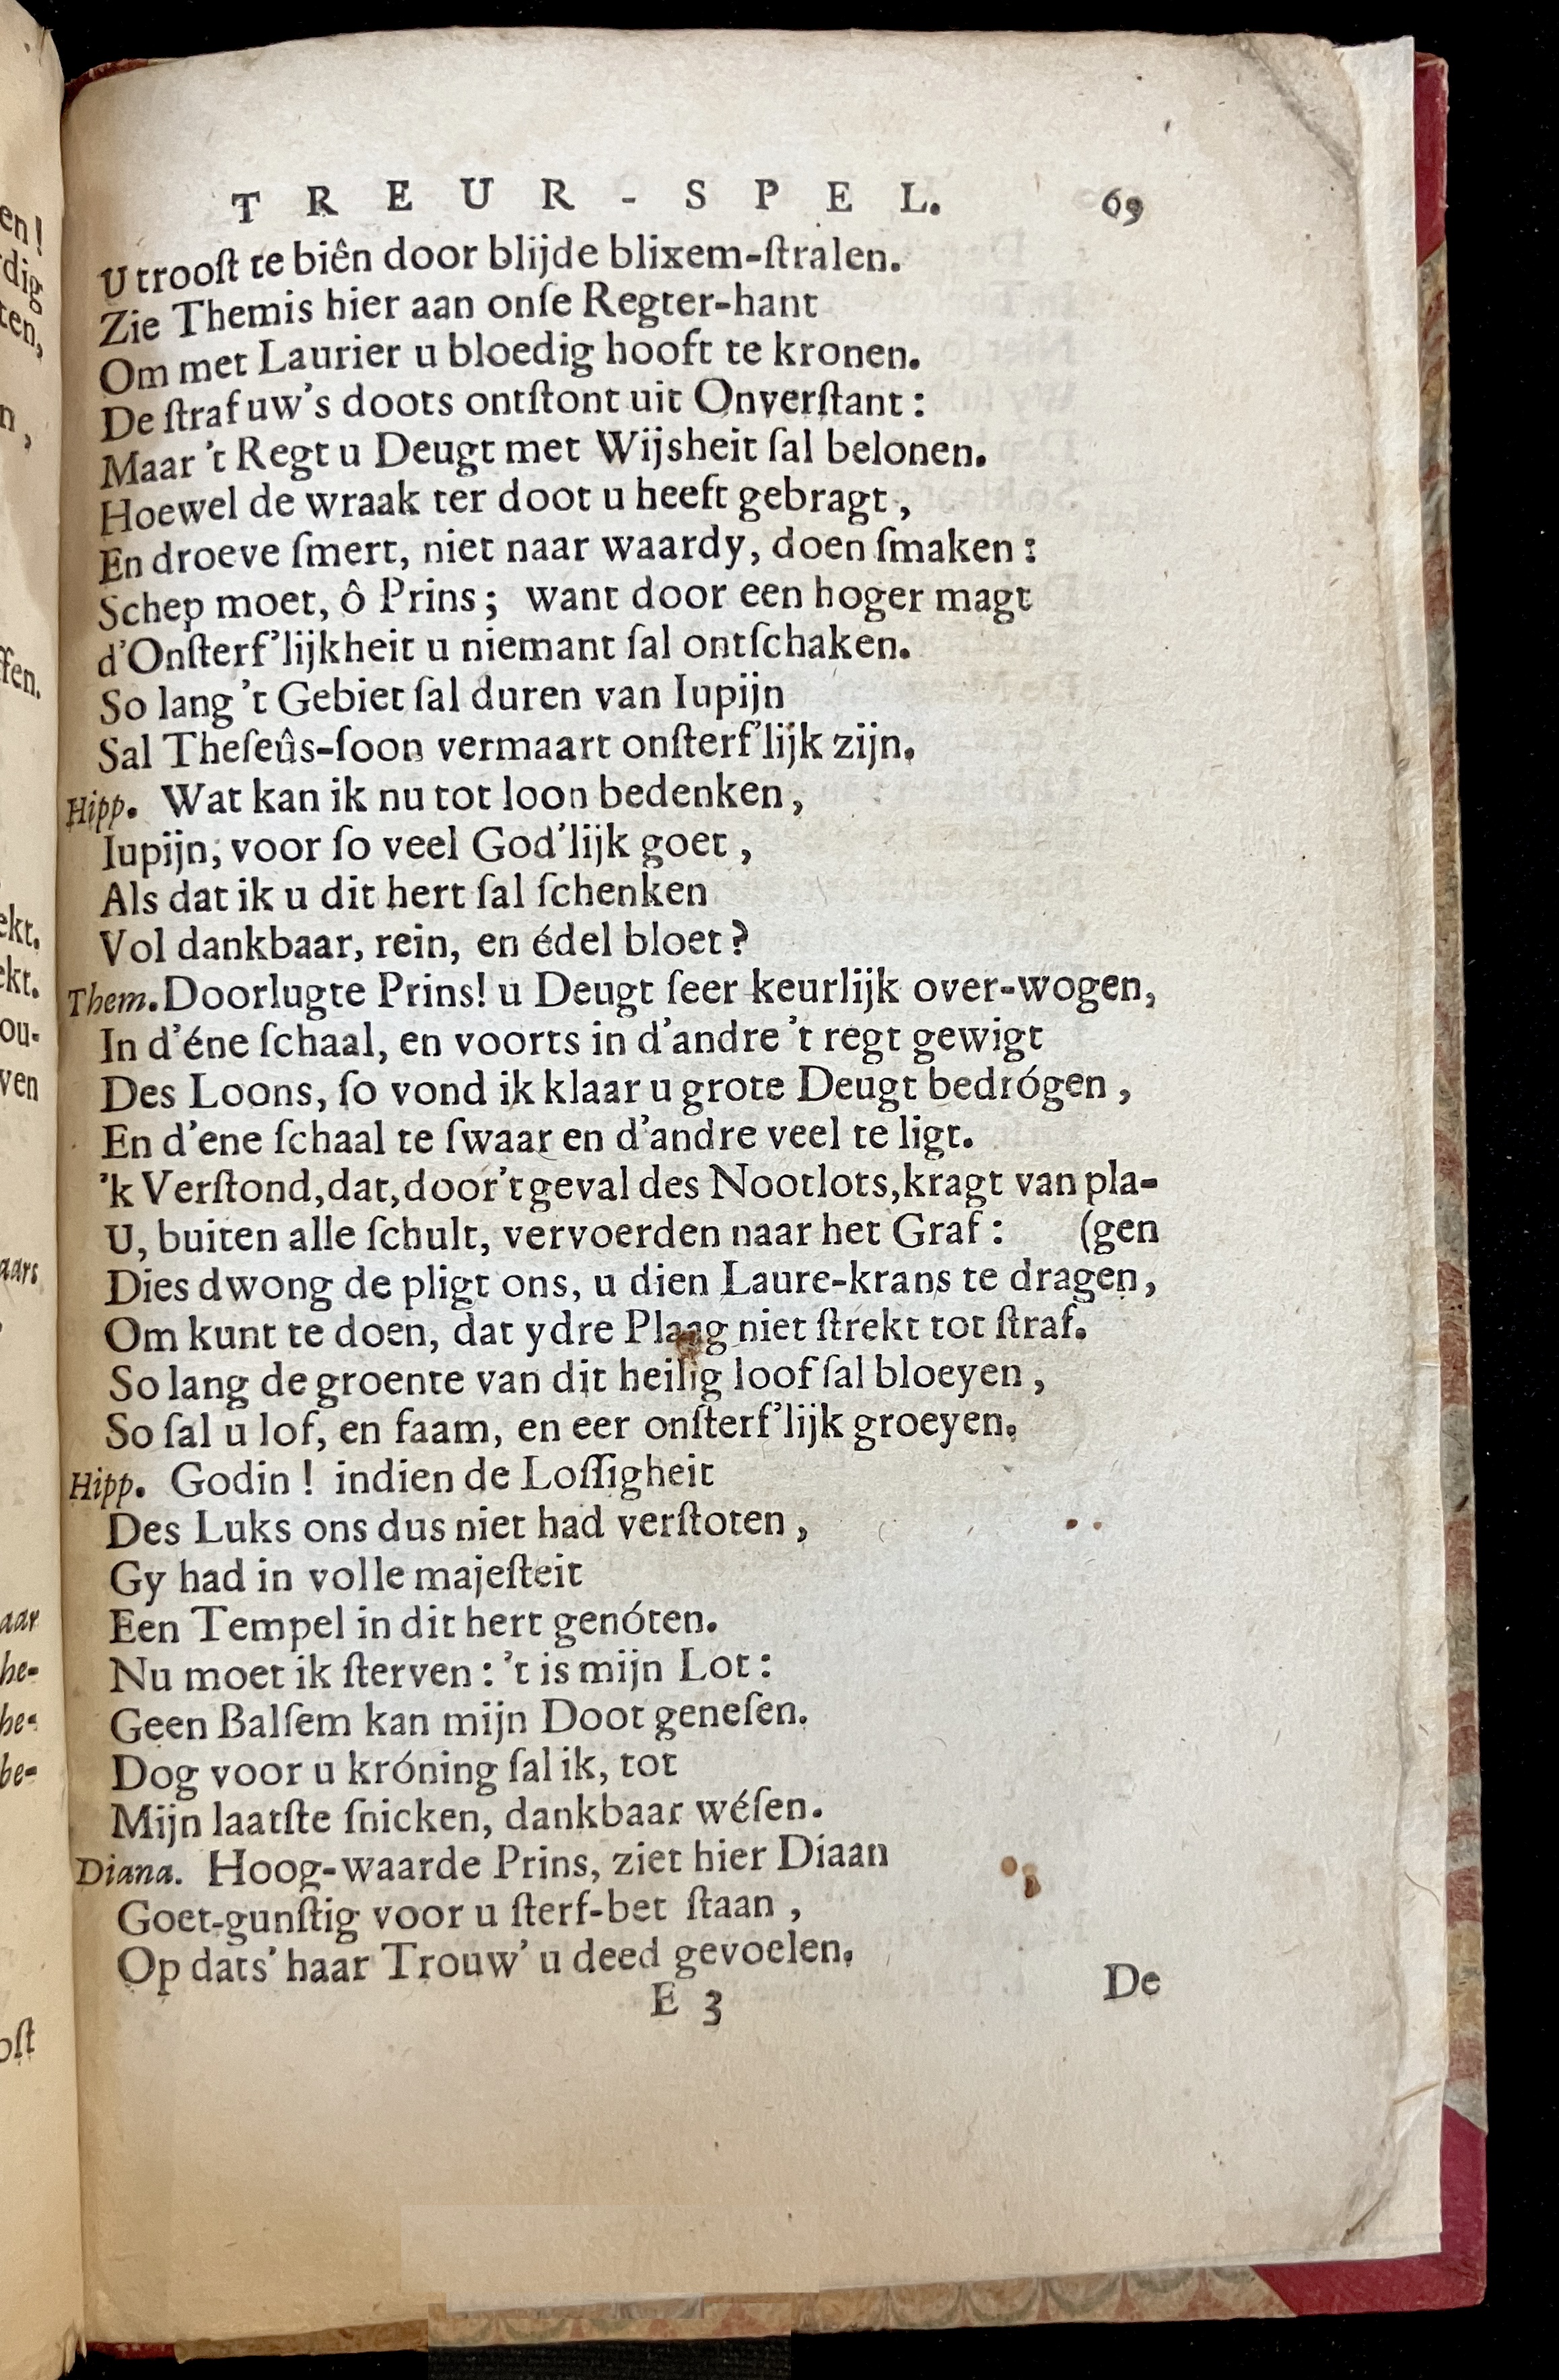 TREUR-SPEL. 69
U trooſt te biên door blijde blixem-ſtralen.
Zie Themis hier aan onſe Regter-hant
Om met Laurier u bloedig hooft te kronen.
De ſtraf uw's doots ontſtont uit Onverſtant:
Maar 't Regt u Deugt met Wijsheit ſal belonen.
Hoewel de wraak ter doot u heeft gebragt,
En droeve ſmert, niet naar waardy, doen ſmaken:
Schep moet, ô Prins; want door een hoger magt
d'Onſterf'lijkheit u niemant ſal ontſchaken.
So lang 't Gebiet ſal duren van Iupijn
Sal Theſeûs-ſoon vermaart onſterf'lijk zijn.
Hipp. Wat kan ik nu tot loon bedenken,
Iupijn, voor ſo veel God'lijk goet,
Als dat ik u dit hert ſal ſchenken
Vol dankbaar, rein, en édel bloet?
Them. Doorlugte Prins! u Deugt ſeer keurlijk over-wogen,
In d'éne ſchaal, en voorts in d'andre 't regt gewigt
Des Loons, ſo vond ik klaar u grote Deugt bedrógen,
En d'ene ſchaal te ſwaar en d'andre veel te ligt.
'k Verſtond, dat, door 't geval des Nootlots, kragt van pla-
U, buiten alle ſchult, vervoerden naar het Graf: (gen
Dies dwong de pligt ons, u dien Laure-krans te dragen,
Om kunt te doen, dat ydre Plaag niet ſtrekt tot ſtraf.
So lang de groente van dit heilig loof ſal bloeyen,
So ſal u lof, en faam, en eer onſterf'lijk groeyen.
Hipp. Godin! indien de Loſſigheit
Des Luks ons dus niet had verſtoten,
Gy had in volle majeſteit
Een Tempel in dit hert genóten.
Nu moet ik ſterven: 't is mijn Lot:
Geen Balſem kan mijn Doot geneſen.
Dog voor u króning ſal ik, tot
Mijn laatſte ſnicken, dankbaar wéſen.
Diana. Hoog-waarde Prins, ziet hier Diaan
Goet-gunſtig voor u ſterf-bet ſtaan,
Op dats' haar Trouw' u deed gevoelen.
E 3 De